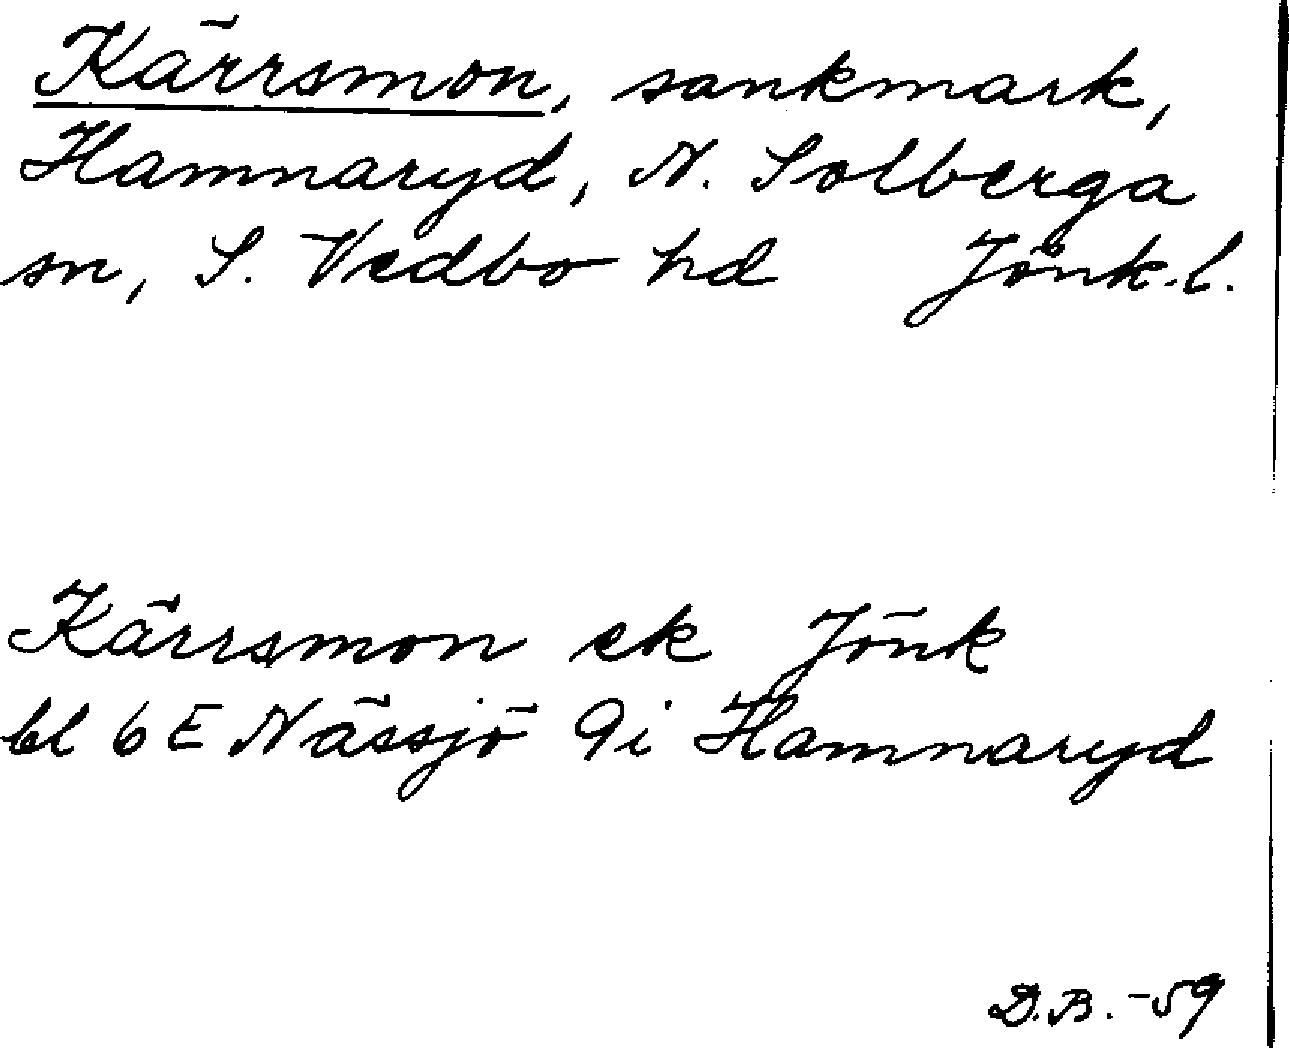 Kärrsmon, sankmark,
Hamnaryd, N. Solberga
sn, S. Vedbo hd Jönk.l.
Kärrsmon ek Jönk
bl 6E Nässjö 9i Hamnaryd
D.B. -59